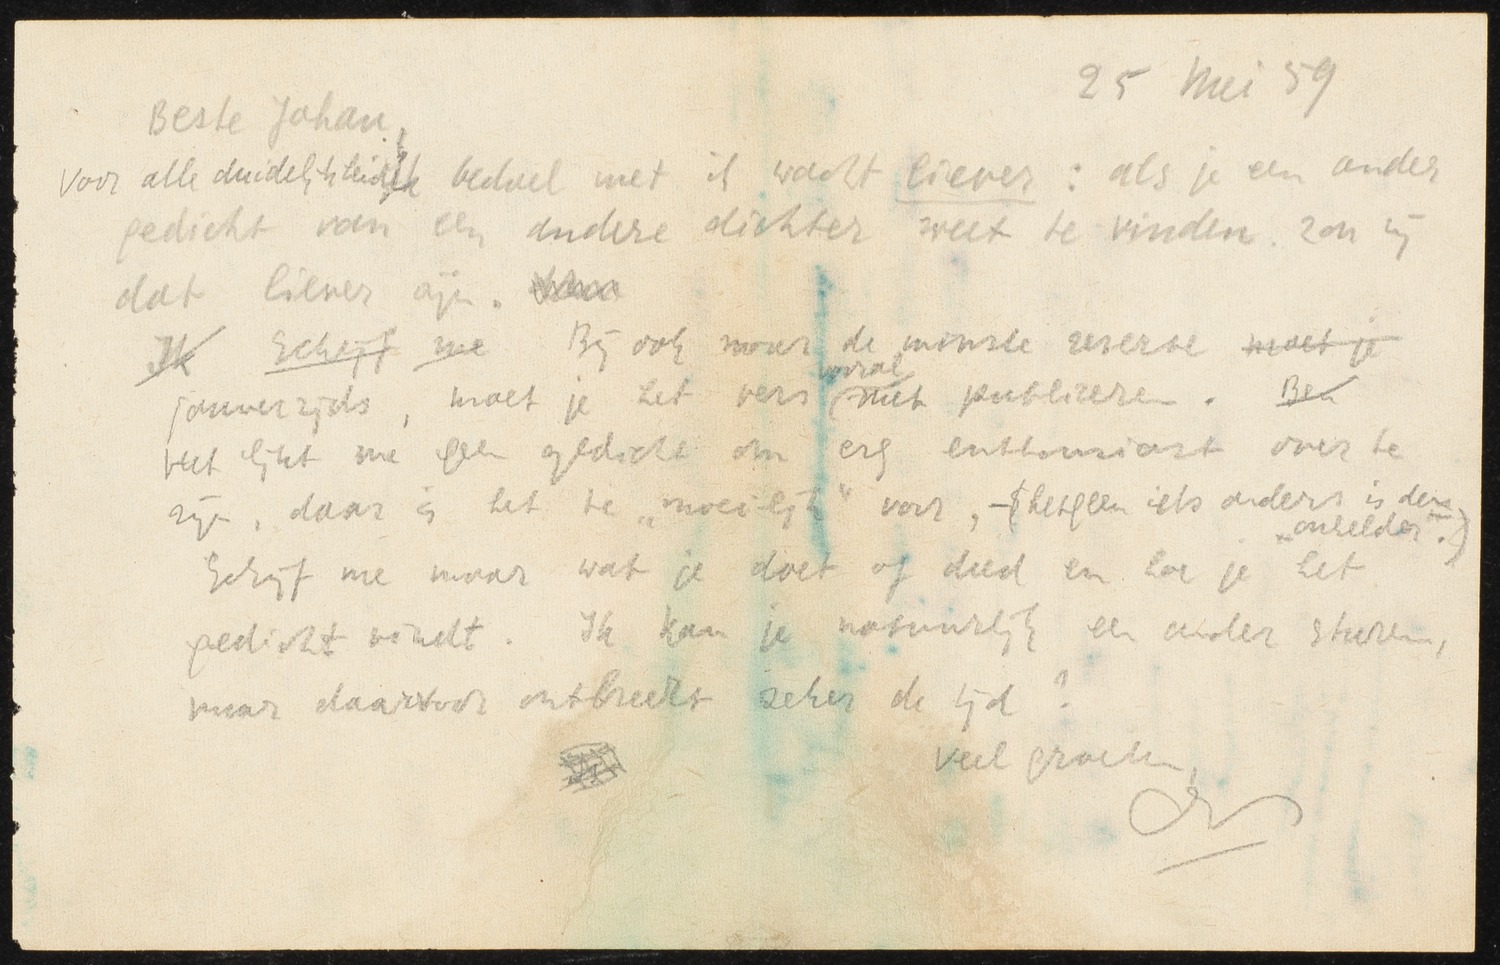 25 Mei 59
Beste Johan,
Voor alle duidelijkheid ik bedoel met ik wacht liever : als je een ander
gedicht van een andere dichter weet te vinden. zou mij
dat liever zijn.
Ik Schrijf me Bij ook maar de minste reserve moet je
jouwerzijds, moet je het vers vooral niet publiceren. Ben
Het lijkt me geen gedicht om erg enthousiast over te
zijn, daar is het te „moeilijk" voor, (hetgeen iets anders is dan
„onhelder".)
Schrijf me maar wat je doet of deed en hoe je het
gedicht vindt. Ik kan je natuurlijk een ander sturen,
maar daarvoor ontbreekt zeker de tijd?
Veel groeten,